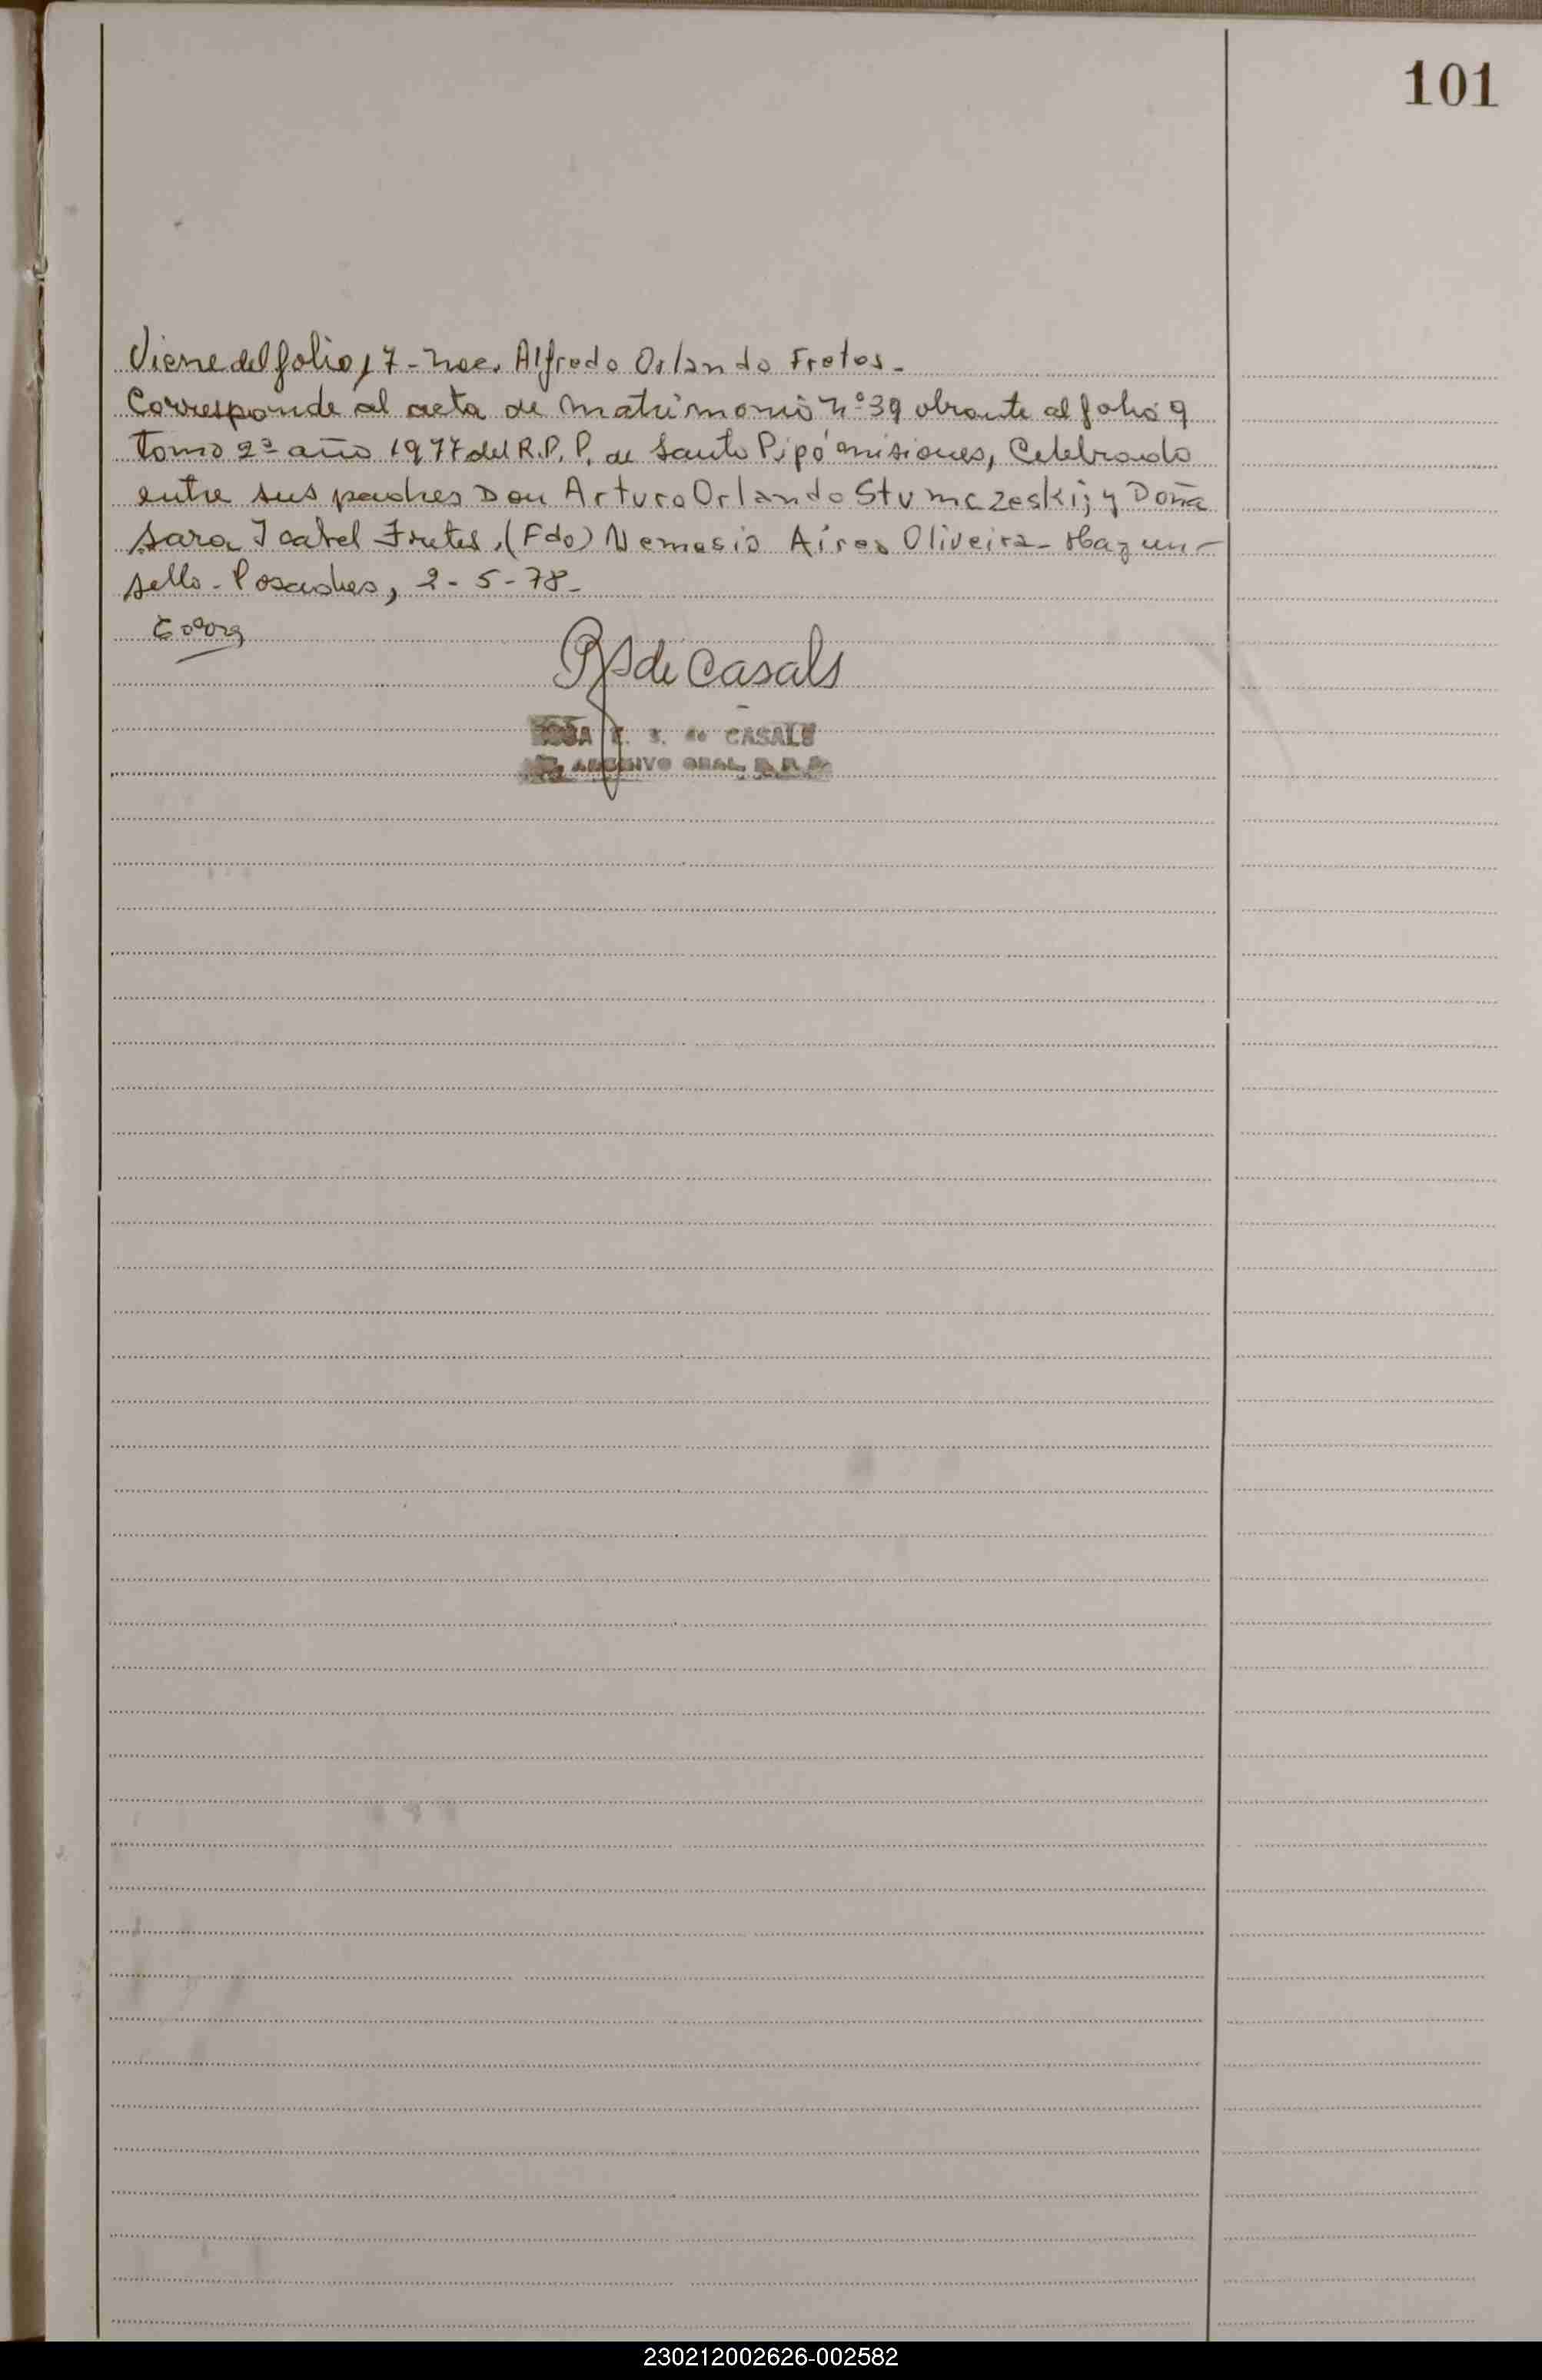 101
Viene del folio 17 - Nac. Alfredo Orlando Fretes -
Corresponde al acta de Matrimonio nº 39 obrante al folio 9
Tomo 2º año 1977 del R.P.P. de Santo Pipó Misiones, Celebrado
entre sus padres Don Arturo Orlando Stumczeski; y Doña
Sara Isabel Fretes, (Fdo) Nemesio Aires Oliveira - Hay un -
sello - Posadas, 2 - 5 - 78 -
de Casals
de CASALS
ARCHIVO GRAL. R.P.P.
230212002626-002582